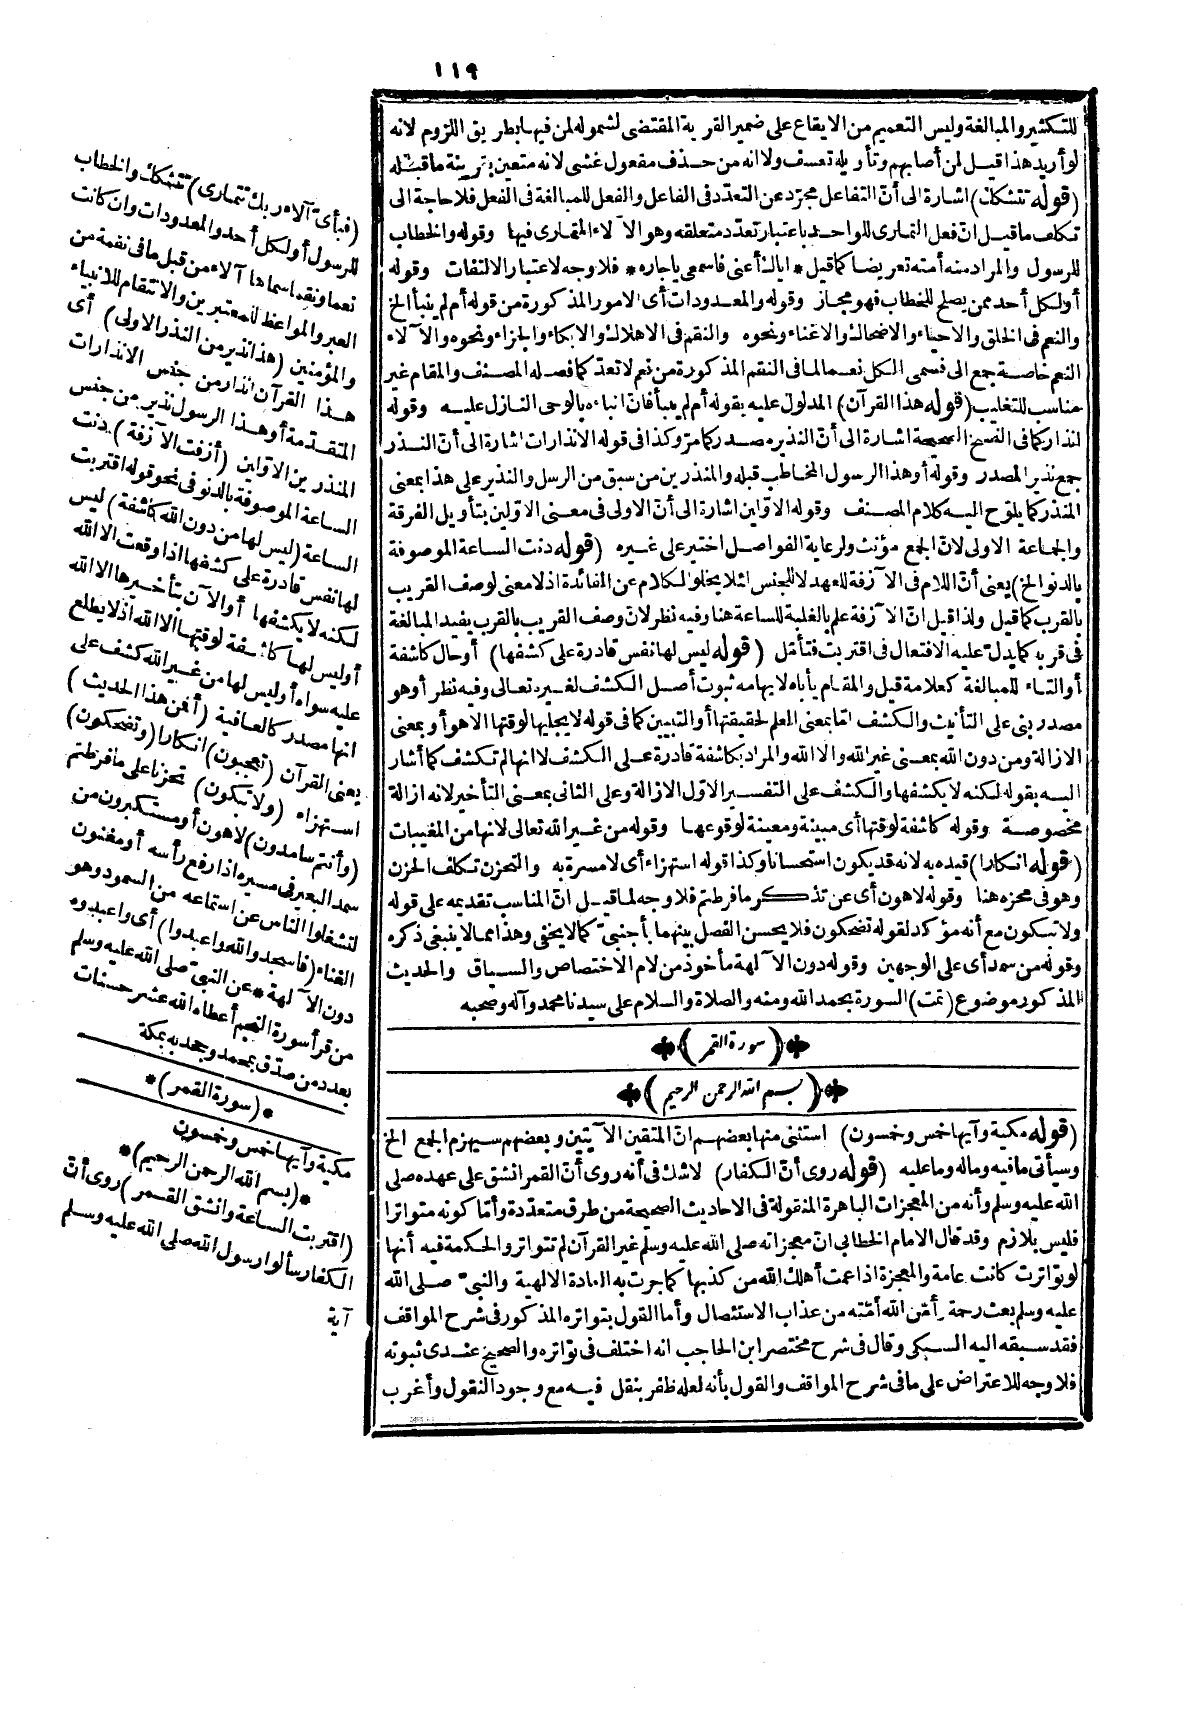 ١١٩
للتكثير والمبالغة وليس التعميم من الايقاع على ضمير القرية المقتضى لشموله لمن فيها بطريق اللزوم لانه
لو أريد هذا قيل لمن أصابهم وتأويله تعسف ولا انه من حذف مفعول غشى لانه متعين بقرينة ما قبله
(قوله تتشكك) اشارة الى أنّ التفاعل مجرّد عن التعدّد فى الفاعل والفعل للمبالغة فى الفعل فلا حاجة الى
تكلف ما قيل انّ فعل التمارى للواحد باعتبار تعدّد متعلقه وهو الآلاء المتمارى فيها وقوله والخطاب
للرسول والمراد منه أمته تعريضا كما قيل * اياك أعنى فاسمعى ياجاره * فلا وجه لاعتبار الالتفات وقوله
أولكل أحد ممن يصلح للخطاب فهو مجاز وقوله والمعدودات أى الامور المذكورة من قوله أم لم ينبأ الخ
والنعم فى الخلق والاحياء والاضحاك والاغناء ونحوه والنقم فى الاهلاك والابكاء والجزاء ونحوه والآلاء
النعم خاصة جمع الى فسمى الكل نعما لما فى النقم المذكورة من نعم لا تعدّ كما فصله المصنف والمقام غير
مناسب للتغليب (قوله هذا القرآن) المدلول عليه بقوله أم لم ينبأ فان انباءه بالوحى النازل عليه وقوله
انذار كما فى النسخ الصحيحة اشارة الى أنّ النذير مصدر كما مرّ وكذا فى قوله الانذارات اشارة الى أنّ النذر
جمع نذير المصدر وقوله أو هذا الرسول المخاطب قبله والمنذرين من سبق من الرسل والنذير على هذا بمعنى
المنذر كما يلوّح اليه كلام المصنف وقوله الاوّلين اشارة الى أنّ الاولى فى معنى الاوّلين بتأويل الفرقة
والجماعة الاولى لانّ الجمع مؤنث ولرعاية الفواصل اختير على غيره (قوله دنت الساعة الموصوفة
بالدنو الخ) يعنى أنّ اللام فى الآزفة للعهد لا للجنس لئلا يخلو الكلام عن الفائدة اذ لا معنى لوصف القريب
بالقرب كما قيل ولذا قيل انّ الآزفة علم بالغلبة للساعة هنا وفيه نظر لانّ وصف القريب بالقرب يفيد المبالغة
فى قربه كما يدلّ عليه الافتعال فى اقتربت فتأمّل (قوله ليس لها نفس قادرة على كشفها) أو حال كاشفة
أو التاء للمبالغة كعلامة قيل والمقام يأباه لايهامه ثبوت أصل الكشف لغيره تعالى وفيه نظر أو هو
مصدر بنى على التأنيث والكشف امّا بمعنى العلم لحقيقتها أو التبيين كما فى قوله لا يجليها لوقتها الا هو أو بمعنى
الازالة ومن دون الله بمعنى غير الله والا الله والمراد بكاشفة قادرة على الكشف لا انها لم تكشف كما أشار
اليه بقوله لكنه لا يكشفها والكشف على التفسير الاوّل الازالة وعلى الثانى بمعنى التأخير لانه ازالة
مخصوصة وقوله كاشفة لوقتها أى مبينة ومعينة لوقوعها وقوله من غير الله تعالى لانها من المغيبات
(قوله انكارا) قيده به لانه قد يكون استحسانا وكذا قوله استهزاء أى لا مسرة به والتحزن تكلف الحزن
وهو فى محزه هنا وقوله لاهون أى عن تذكر ما فرطتم فلا وجه لما قيل انّ المناسب تقديمه على قوله
ولا تبكون مع أنه مؤكد لقوله تضحكون فلا يحسن الفصل بينهما بأجنبىّ كما لا يخفى وهذا مما لا ينبغى ذكره
وقوله من سمد أى على الوجهين وقوله دون الآلهة مأخوذ من لام الاختصاص والسياق والحديث
المذكور موضوع (تمت) السورة بحمد الله ومنه والصلاة والسلام على سيدنا محمد وآله وصحبه
(سورة القمر)
(بسم الله الرحمن الرحيم)
(قوله مكية وآيها خمس وخمسون) استثنى منها بعضهم انّ المتقين الآيتين وبعضهم سيهزم الجمع الخ
وسيأتى ما فيه وما له وما عليه (قوله روى أنّ الكفار) لاشك فى أنه روى أنّ القمر انشق على عهده صلى
الله عليه وسلم وأنه من المعجزات الباهرة المنقولة فى الاحاديث الصحيحة من طرق متعدّدة وأمّا كونه متواترا
فليس بلازم وقد قال الامام الخطابى انّ معجزاته صلى الله عليه وسلم غير القرآن لم تتواتر والحكمة فيه أنها
لو تواترت كانت عامة والمعجزة اذا عمت أهلك الله من كذبها كما جرت به العادة الالهية والنبىّ صلى الله
عليه وسلم بعث رحمة أمّن الله أمّته من عذاب الاستئصال وأما القول بتواتره المذكور فى شرح المواقف
فقد سبقه اليه السبكى وقال فى شرح مختصر ابن الحاجب انه اختلف فى تواتره والصحيح عندى ثبوته
فلا وجه للاعتراض على ما فى شرح المواقف والقول بأنه لعله ظفر بنقل فيه مع وجود النقول وأغرب
(فبأىّ آلاء ربك تتمارى) تتشكك والخطاب
للرسول أولكل أحد والمعدودات وان كانت
نعما ونقما سماها آلاء من قبل ما فى نقمة من
العبر والمواعظ للمعتبرين والانتقام للانبياء
والمؤمنين (هذا نذير من النذر الاولى) أى
هذا القرآن انذار من جنس الانذارات
المتقدّمة أو هذا الرسول نذير من جنس
المنذرين الاوّلين (أزفت الآزفة) دنت
الساعة الموصوفة بالدنو فى نحو قوله اقتربت
الساعة (ليس لها من دون الله كاشفة) ليس
لها نفس قادرة على كشفها اذا وقعت الا الله
لكنه لا يكشفها أو الآن بتأخيرها الا الله
أو ليس لها كاشفة لوقتها الا الله اذ لا يطلع
عليه سواه أو ليس لها من غير الله كشف على
انها مصدر كالعافية (أفمن هذا الحديث)
يعنى القرآن (تعجبون) انكارا (وتضحكون)
استهزاء (ولا تبكون) تحزنا على ما فرطتم
(وأنتم سامدون) لاهون أو مستكبرون من
سمد البعير فى مسيره اذا رفع رأسه أو مغنون
لتشغلوا الناس عن استماعه من السمود وهو
الغناء (فاسجدوا لله واعبدوا) أى واعبدوه
دون الآلهة * عن النبىّ صلى الله عليه وسلم
من قرأ سورة النجم أعطاه الله عشر حسنات
بعدد من صدّق بمحمد وجحد به بمكة
* (سورة القمر) *
مكية وآيها خمس وخمسون
* (بسم الله الرحمن الرحيم) *
(اقتربت الساعة وانشق القمر) روى أنّ
الكفار سألوا رسول الله صلى الله عليه وسلم
آية